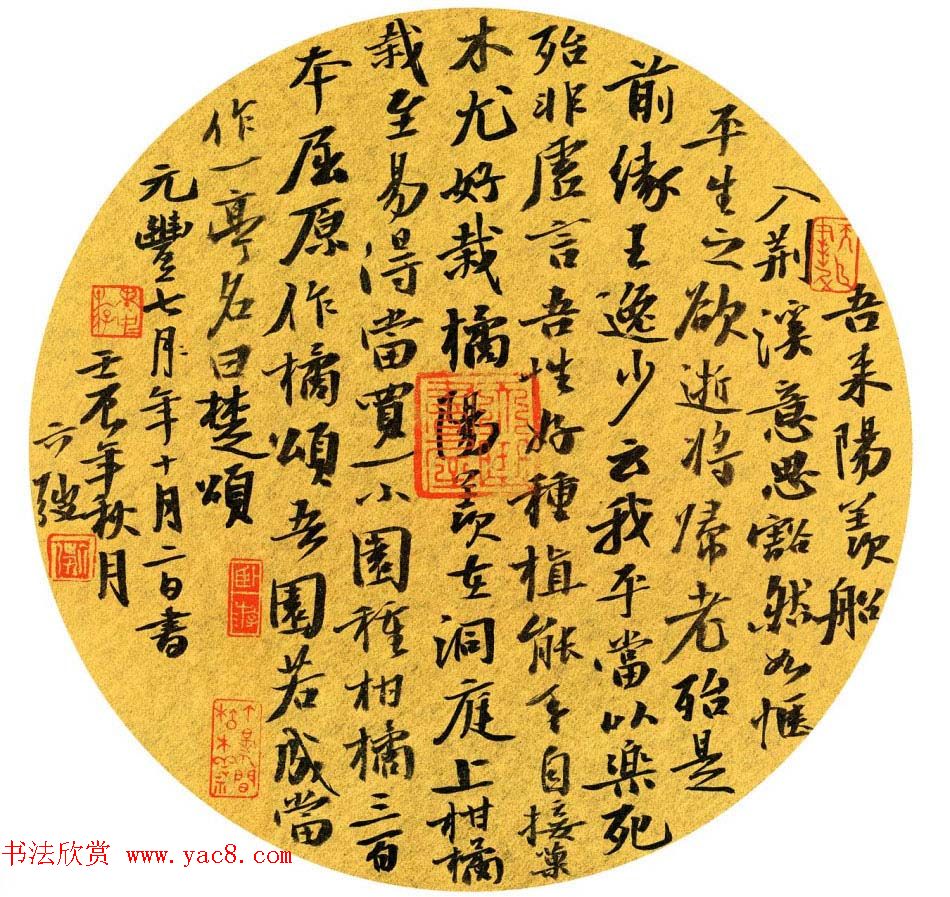 吾来陽羨船
入荊溪意思豁然如愜
平生之欲逝将歸老殆是
前緣王逸少云我平當以樂死
殆非虚言吾性好種植能手自接菓
木尤好栽橘陽羨在洞庭上柑橘
栽至易得當買一小園種柑橘三百
本屈原作橘頌吾園若成當
作一亭名曰楚頌
元豐七月年十月二日書
壬辰年秋月
六
书法欣赏 www.yac8.com